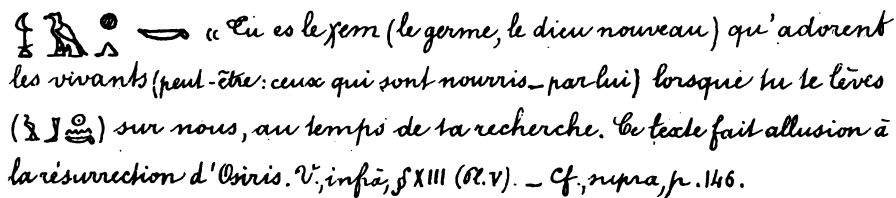 « Tu es le χem (le germe, le dieu nouveau) qu'adorent
les vivants (peut-être: ceux qui sont nourris par lui) lorsque tu te lèves
( ) sur nous, au temps de ta recherche. Ce texte fait allusion à
la résurrection d'Osiris. V., infrà, § XIII (Pl. V). _ Cf., supra, p. 146.